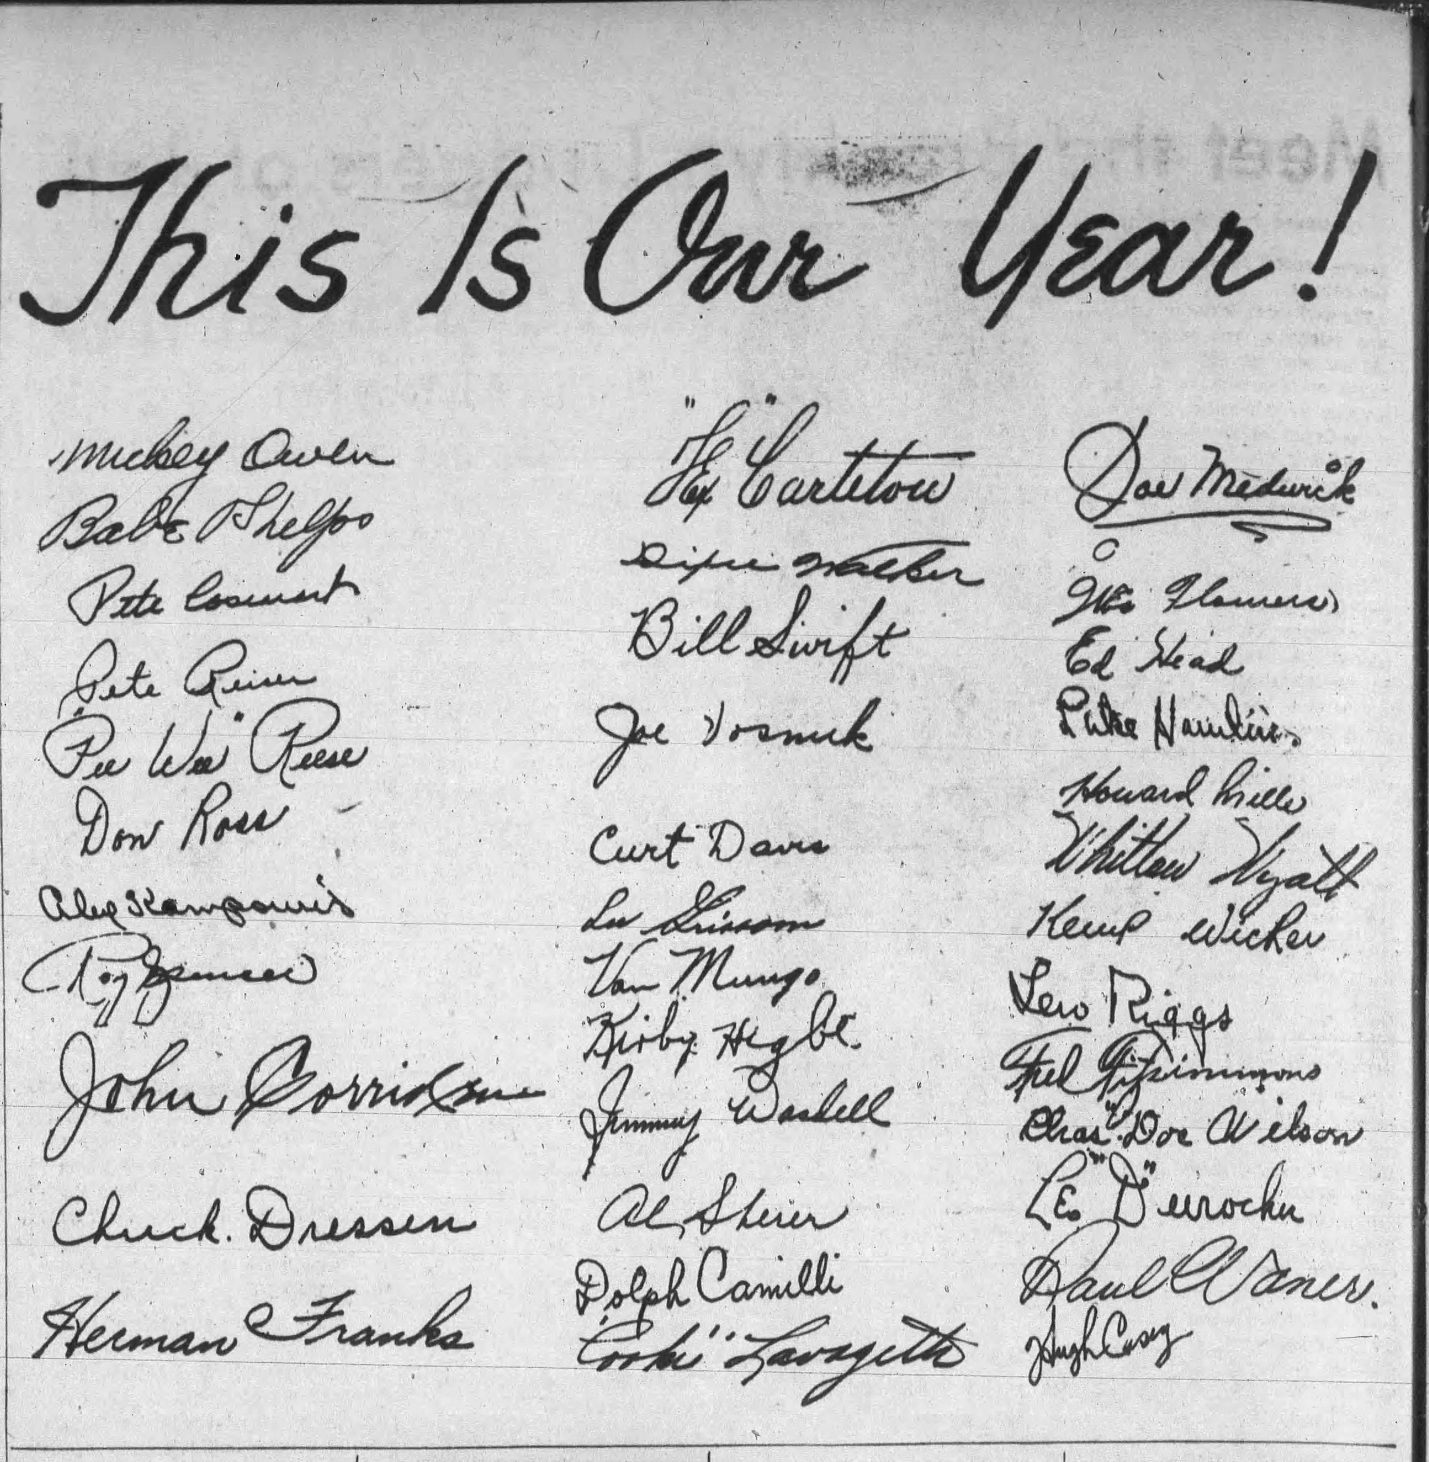 This Is Our Year!
Mickey Owen
Babe Phelps
Pete Coscarart
Pete Reiser
"Pee Wee" Reese
Don Ross
Alex Kampouris
Roy Spencer
John Corriden
Chuck Dressen
Herman Franks
"Tex" Carleton
Dixie Walker
Bill Swift
Joe Vosmik
Curt Davis
Lee Grissom
Van Mungo
Kirby Higbe
Jimmy Wasdell
Al Sherer
Dolph Camilli
"Cookie" Lavagetto
Joe Medwick
Wes Flowers
Ed Head
Luke Hamlin
Howard Mills
Whitlow Wyatt
Kemp Wicker
Lew Riggs
Fred Fitzsimmons
Chas "Doc" Wilson
Leo "D" eurocher
Paul Waner.
Hugh Casey